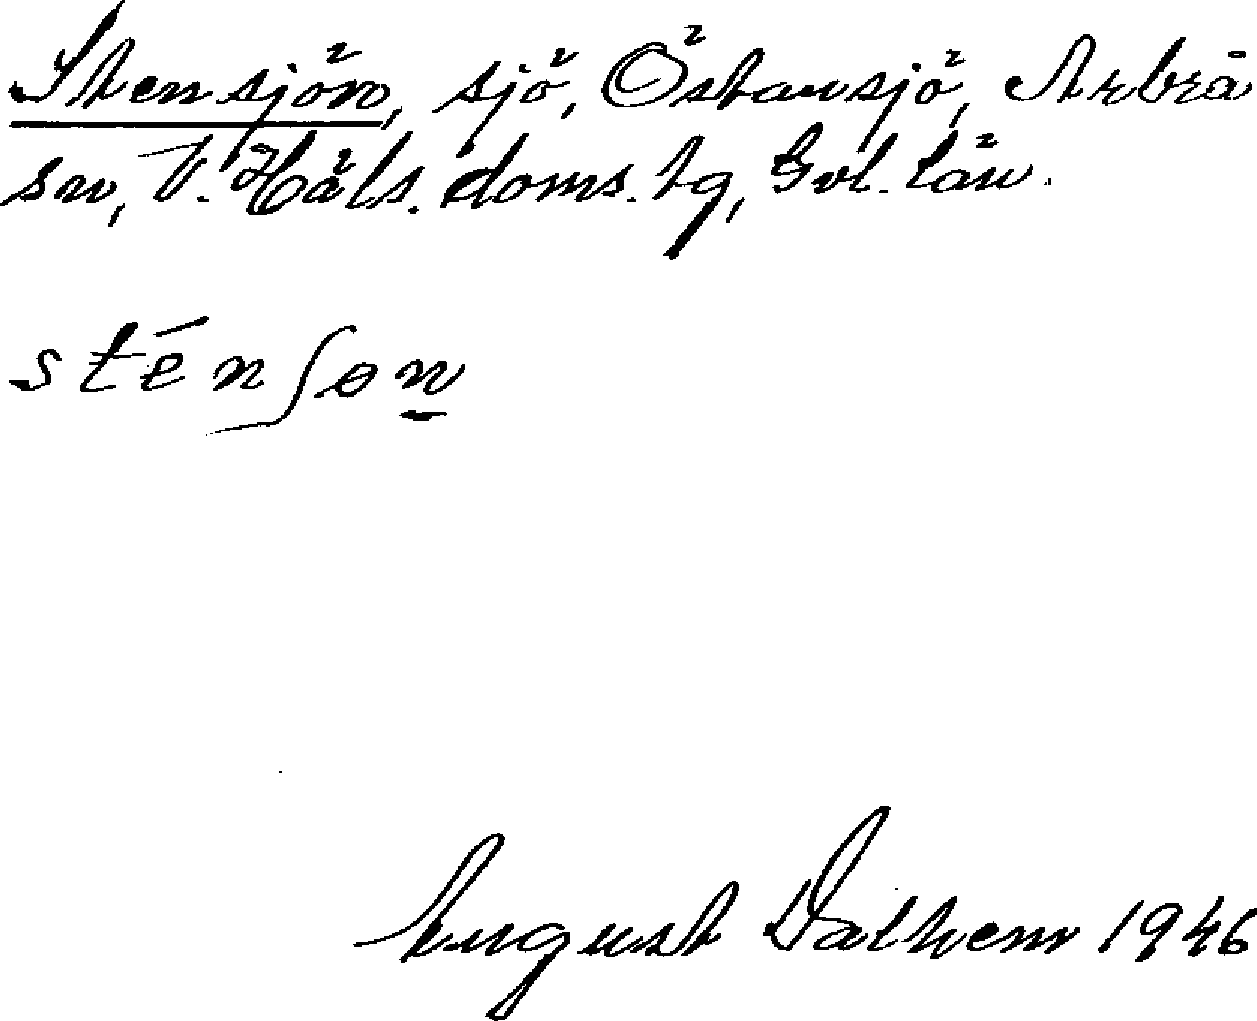 Stensjön, sjö, Östansjö, Arbrå
sn, V. Häls. doms. tg, Gvl. län.
sténʃøn
August Dalhem 1946